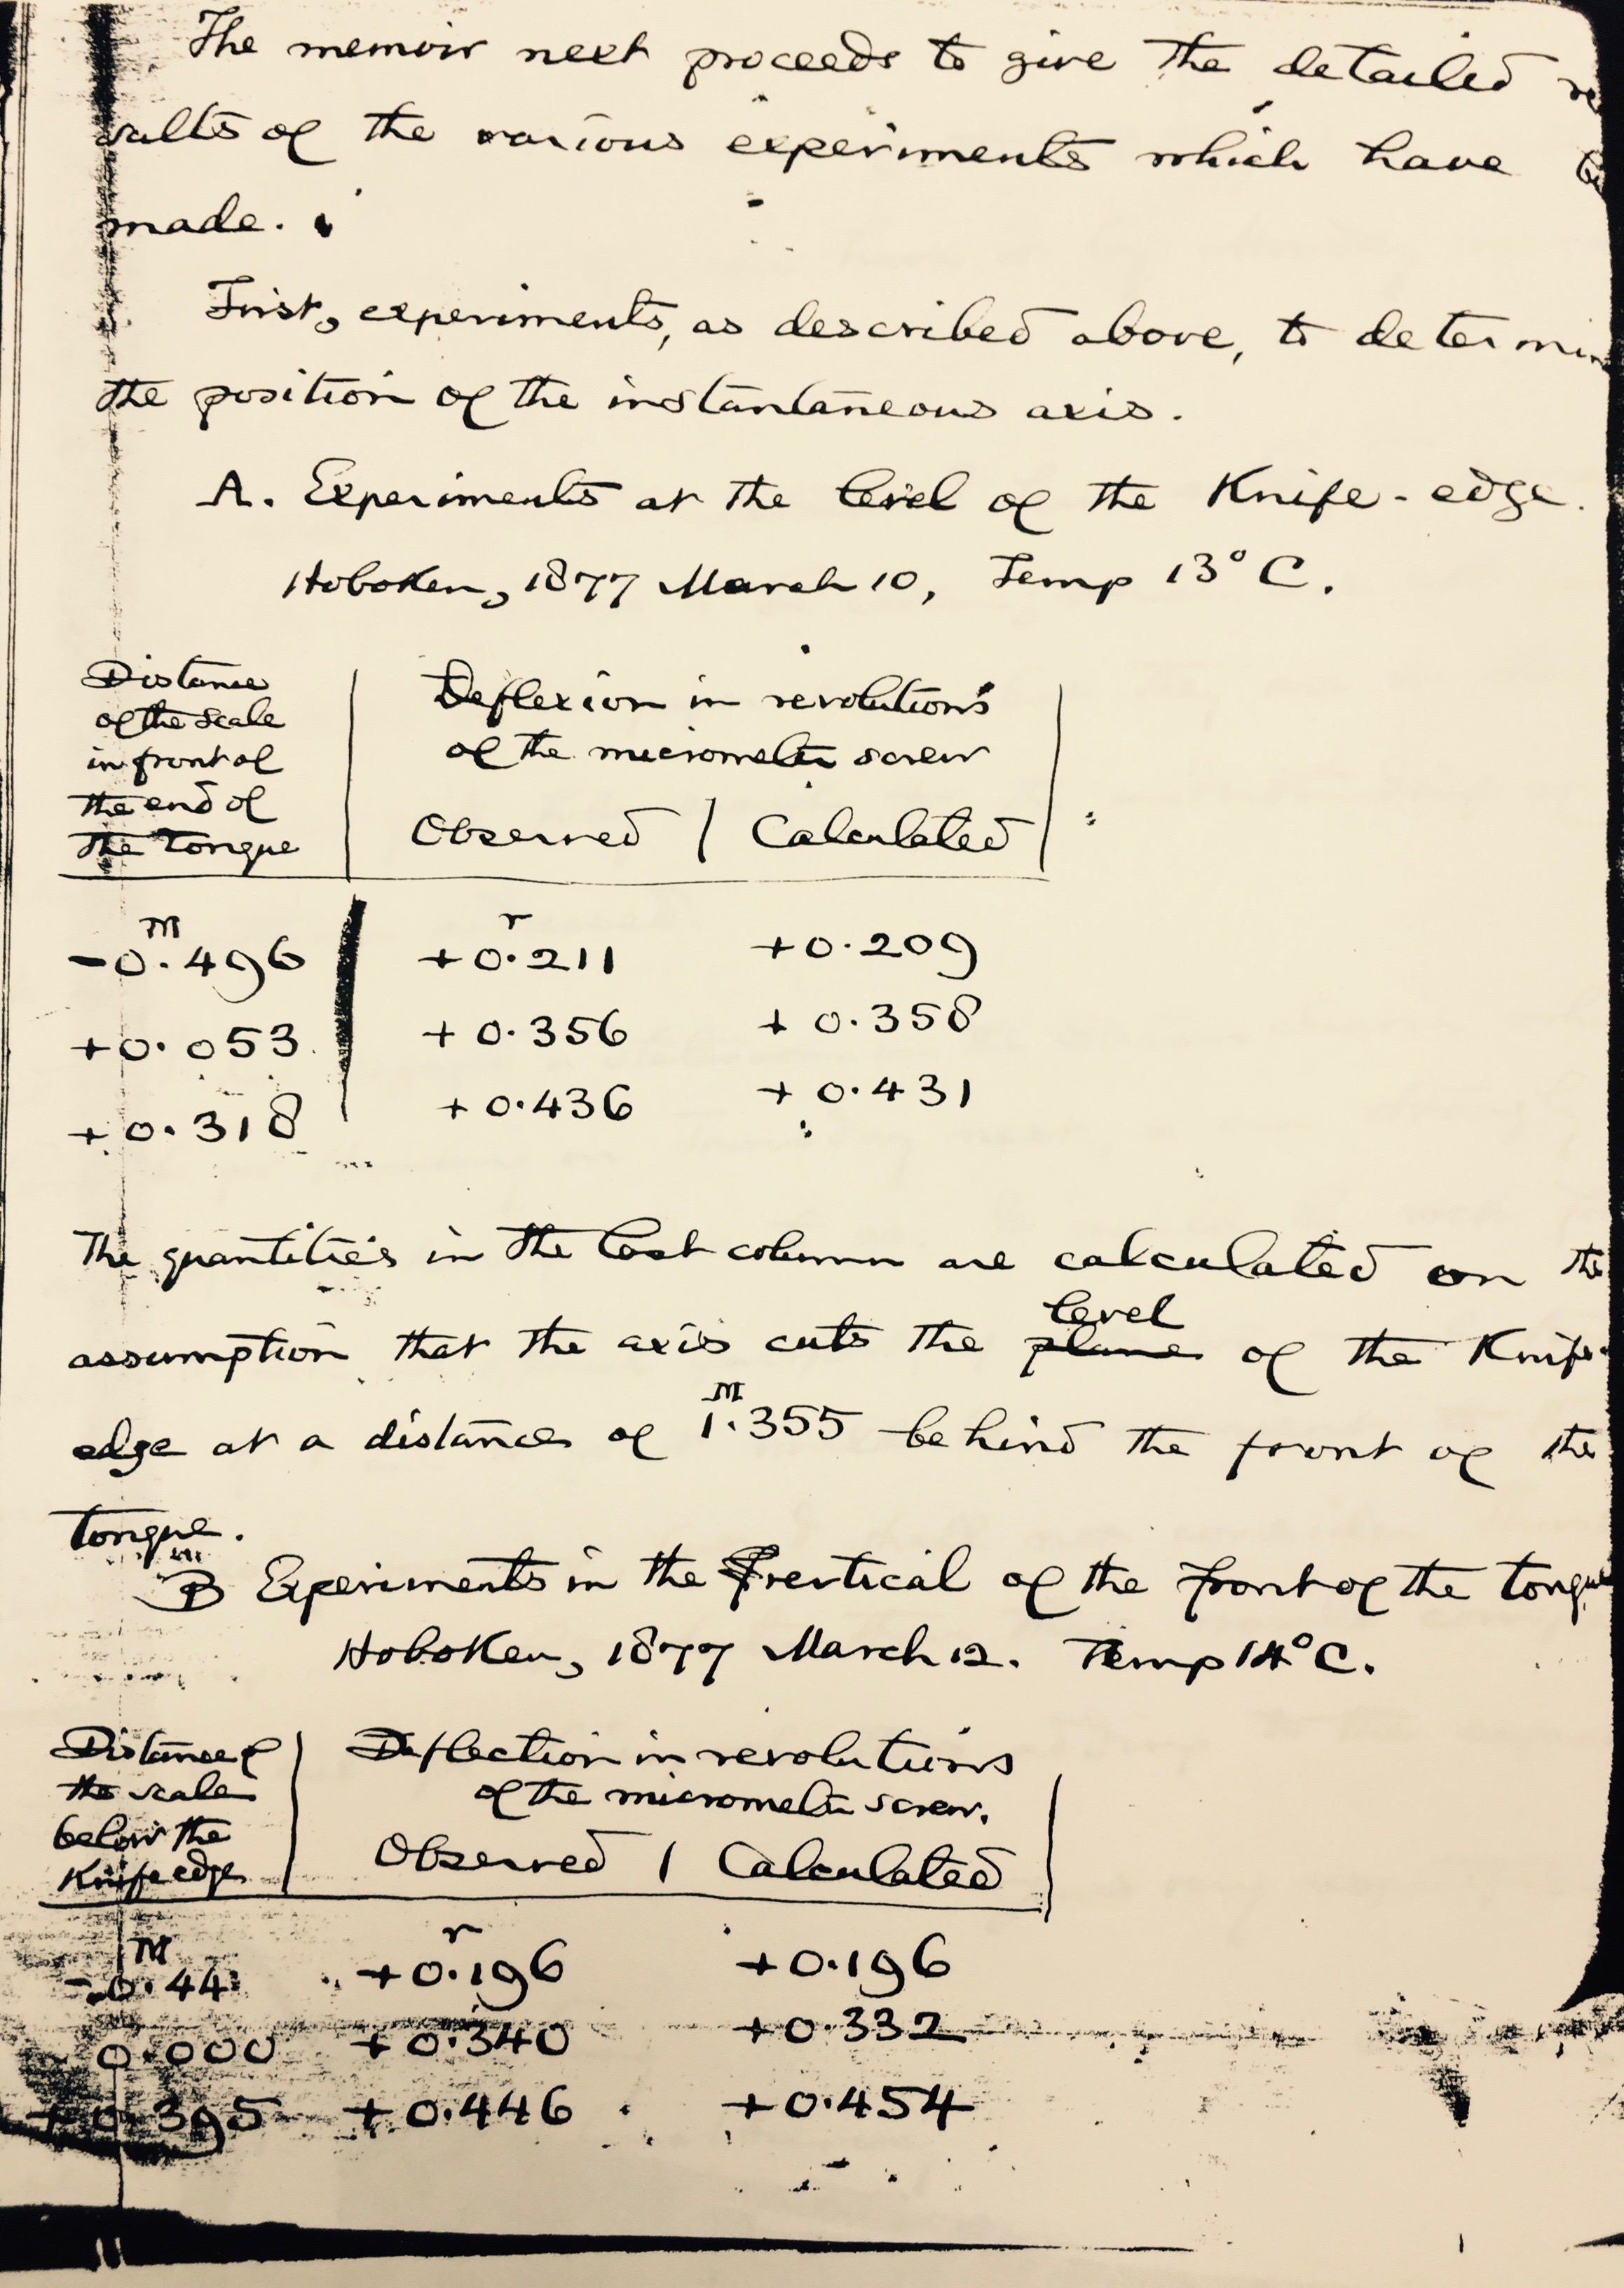 The memoir next proceeds to give the detailed re
sults of the various experiments which have be
made.
First, experiments, as described above, to determin
the position of the instantaneous axis.
A. Experiments at the level of the Knife-edge.
Hoboken, 1877 March 10, Temp 13° C.
Distance
of the scale
in front of
the end of
the tongue
Deflexion in revolutions
of the micrometer screw
Observed | Calculated
M r
-0.496 +0.211 +0.209
+0.053 +0.356 +0.358
+0.318 +0.436 +0.431
The quantities in the last column are calculated on the
level
assumption that the axis cuts the plane of the Knife-
M
edge at a distance of 1.355 behind the front of the
tongue.
B Experiments in the vertical of the front of the tongue
Hoboken, 1877 March 12. Temp 14° C.
Distance of
the scale
below the
Knife edge
Deflection in revolutions
of the micrometer screw.
Observed | Calculated
M r
-0.44 +0.196 +0.196
0.000 +0.340 +0.332
+0.395 +0.446 +0.454